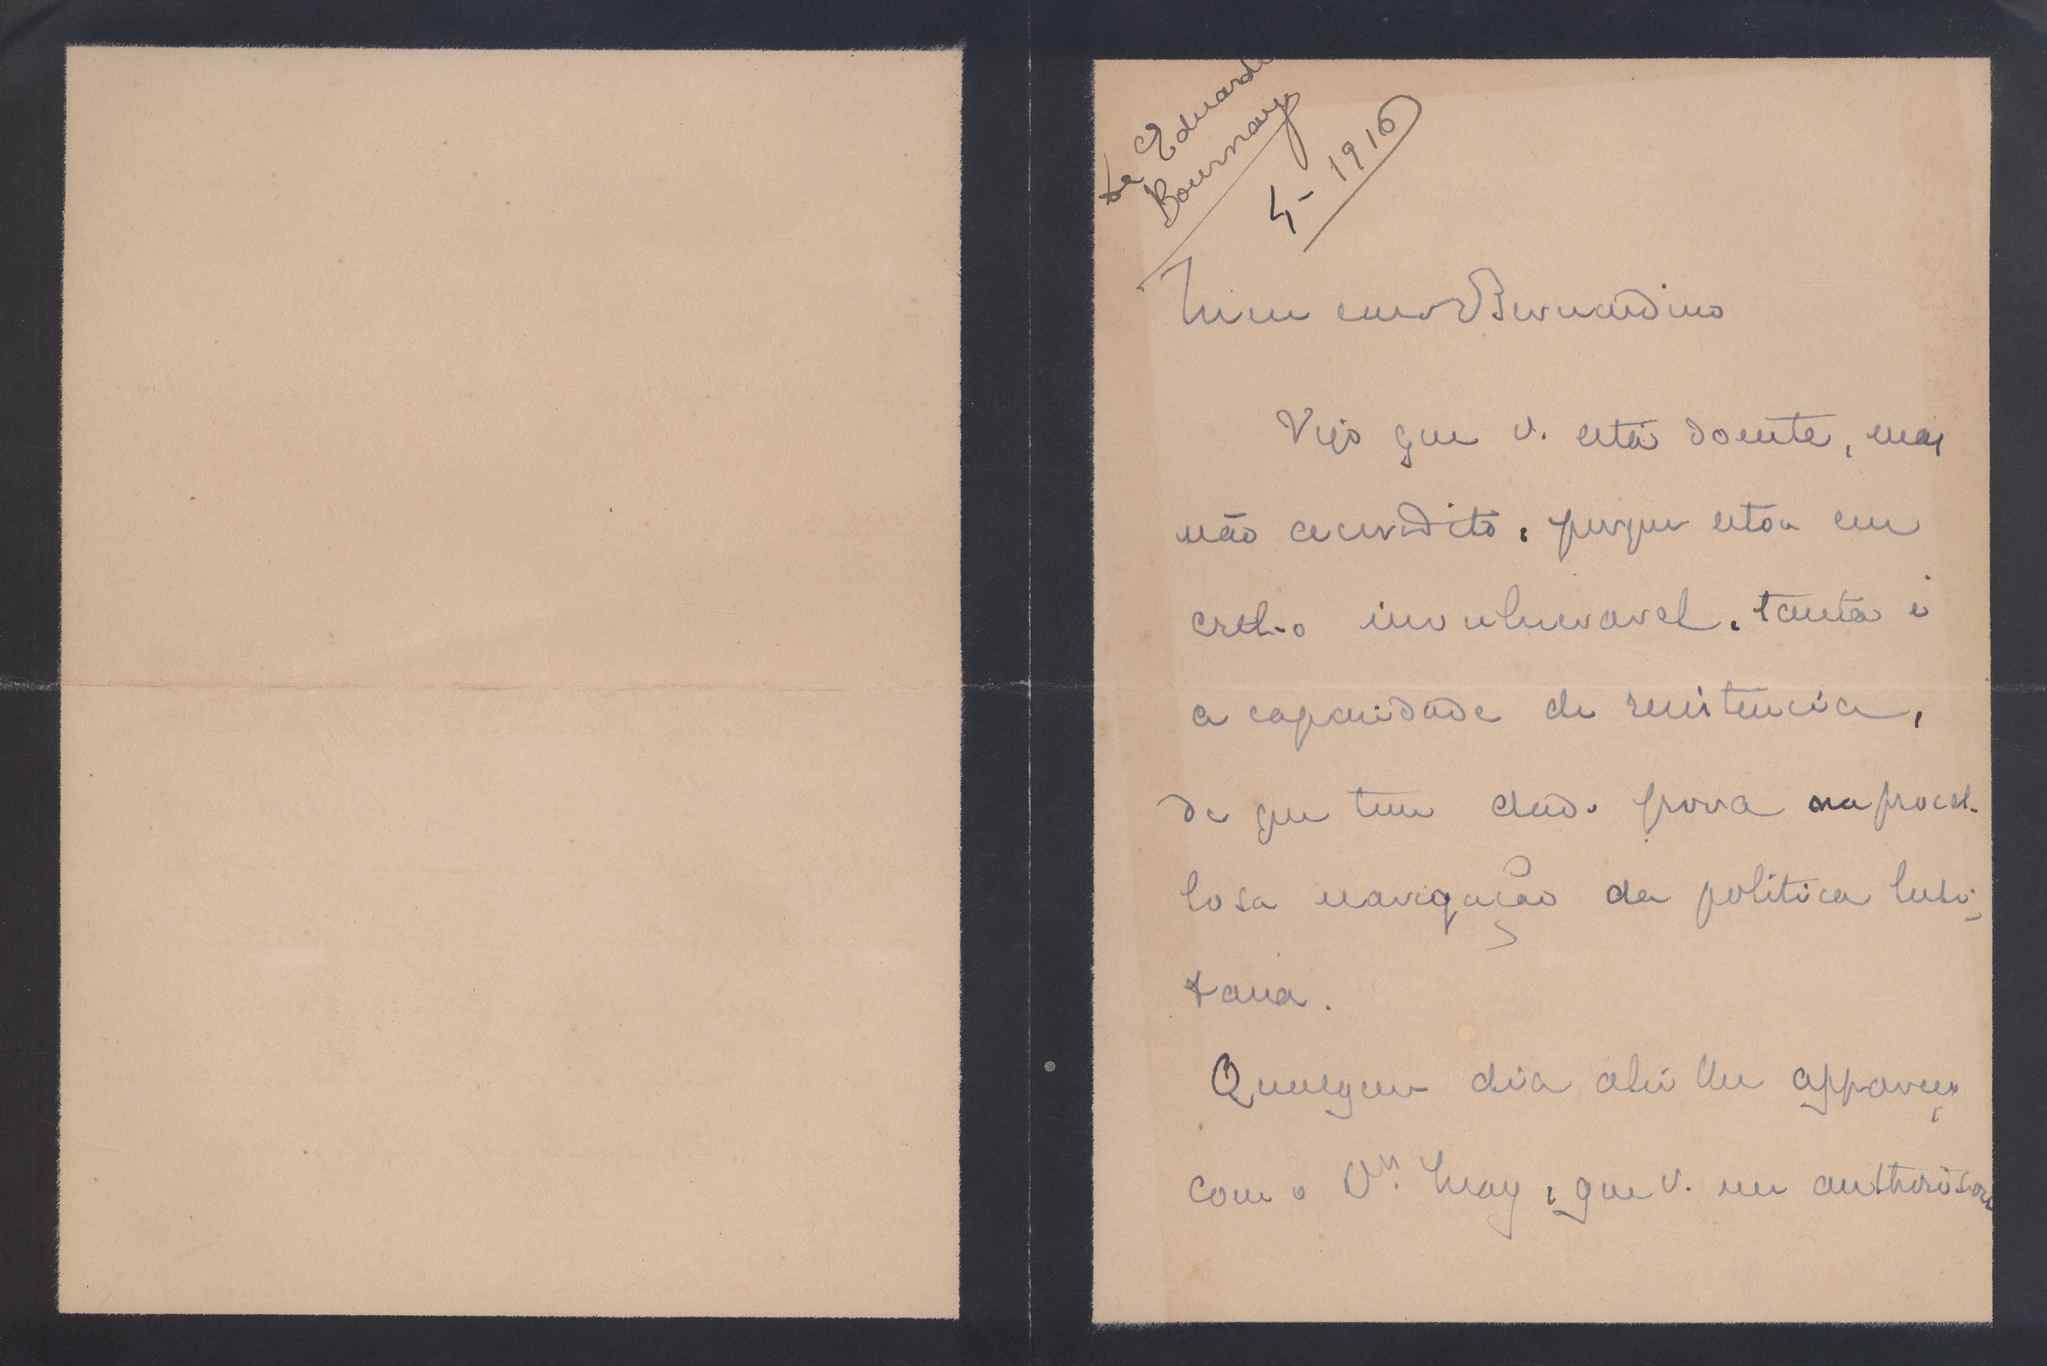 De Eduardo
Bournay
4-1916
Meu caro Bernardino
Vejo que v. está doente, mas
não acredito, porque estou em
crel-o invulneravel, tanta é
a capacidade de resistencia,
de que tem dado prova na procel-
losa navigação da politica lusi-
tana.
Qualquer dia ahi lhe appareço
com o Dr. May, que v. me authorisou